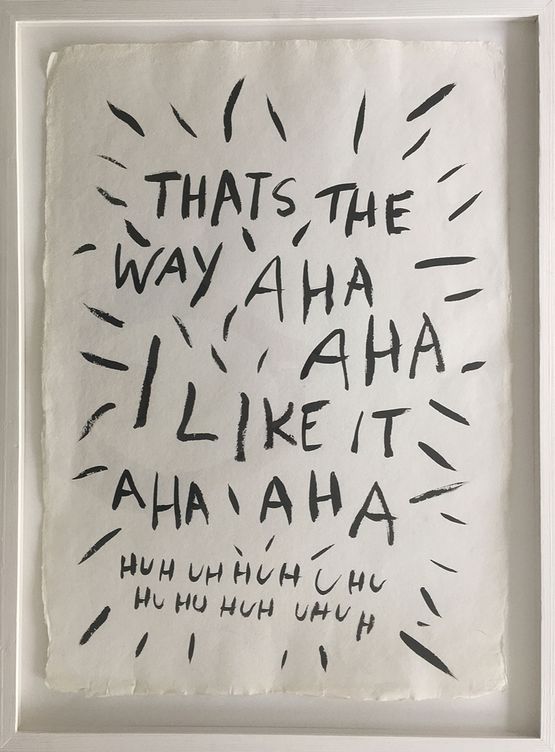 THATS THE
WAY AHA
AHA
I LIKE IT
AHA AHA
HUH UH HUH UHU
HU HU HUH UHU H